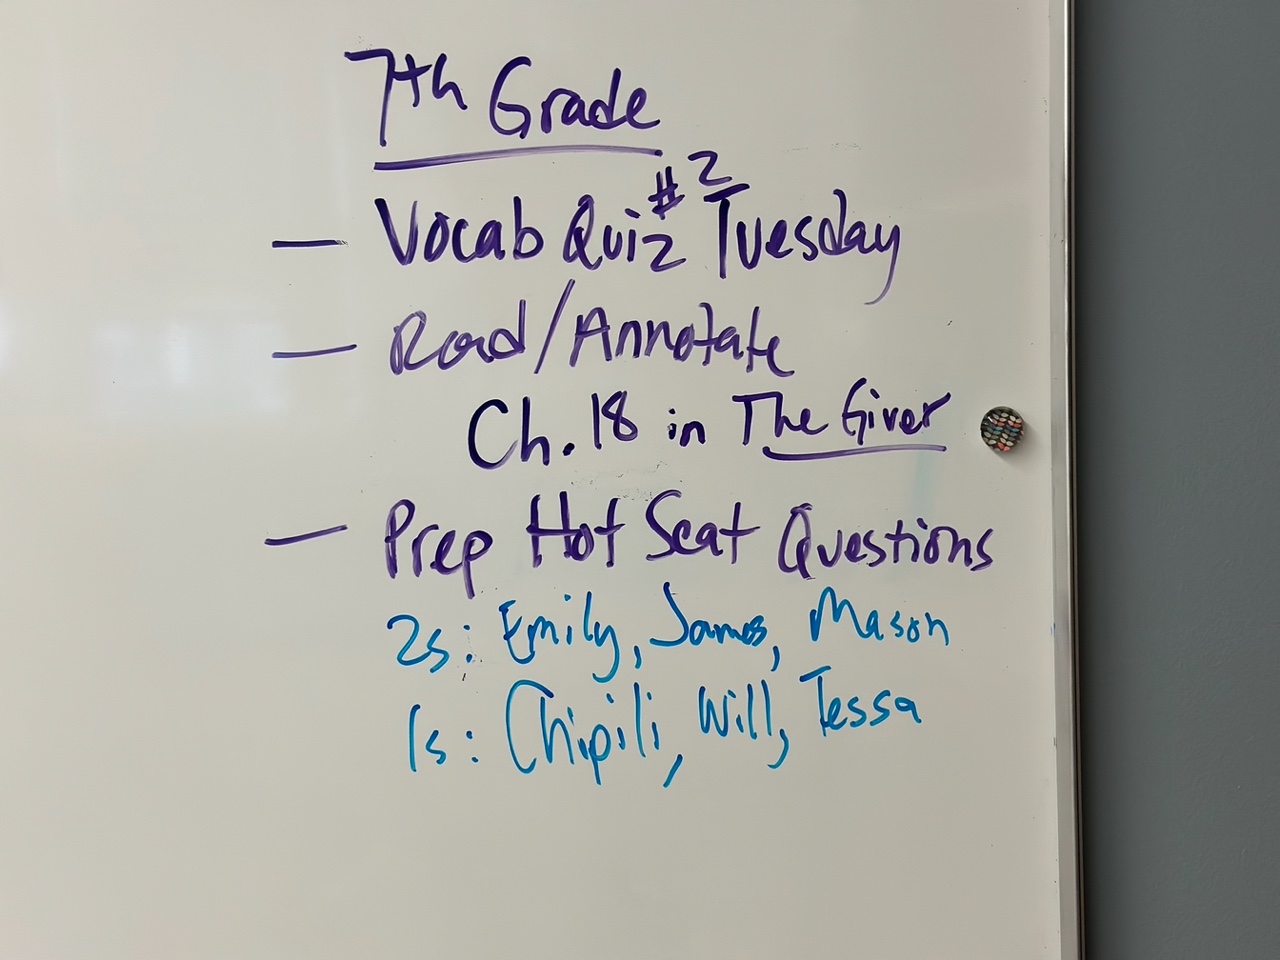 7th Grade
— Vocab Quiz #2 Tuesday
— Read/Annotate
Ch. 18 in The Giver
— Prep Hot Seat Questions
2s: Emily, James, Mason
1s: Chipili, Will, Tessa